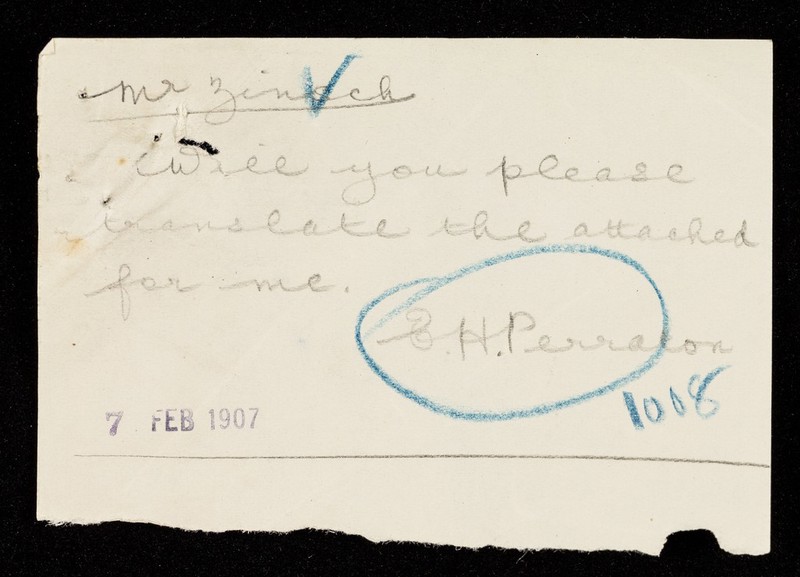 Mr Zinsch
Will you please
translate the attached
for me.
E.H. Perraton
1008
7 FEB 1907